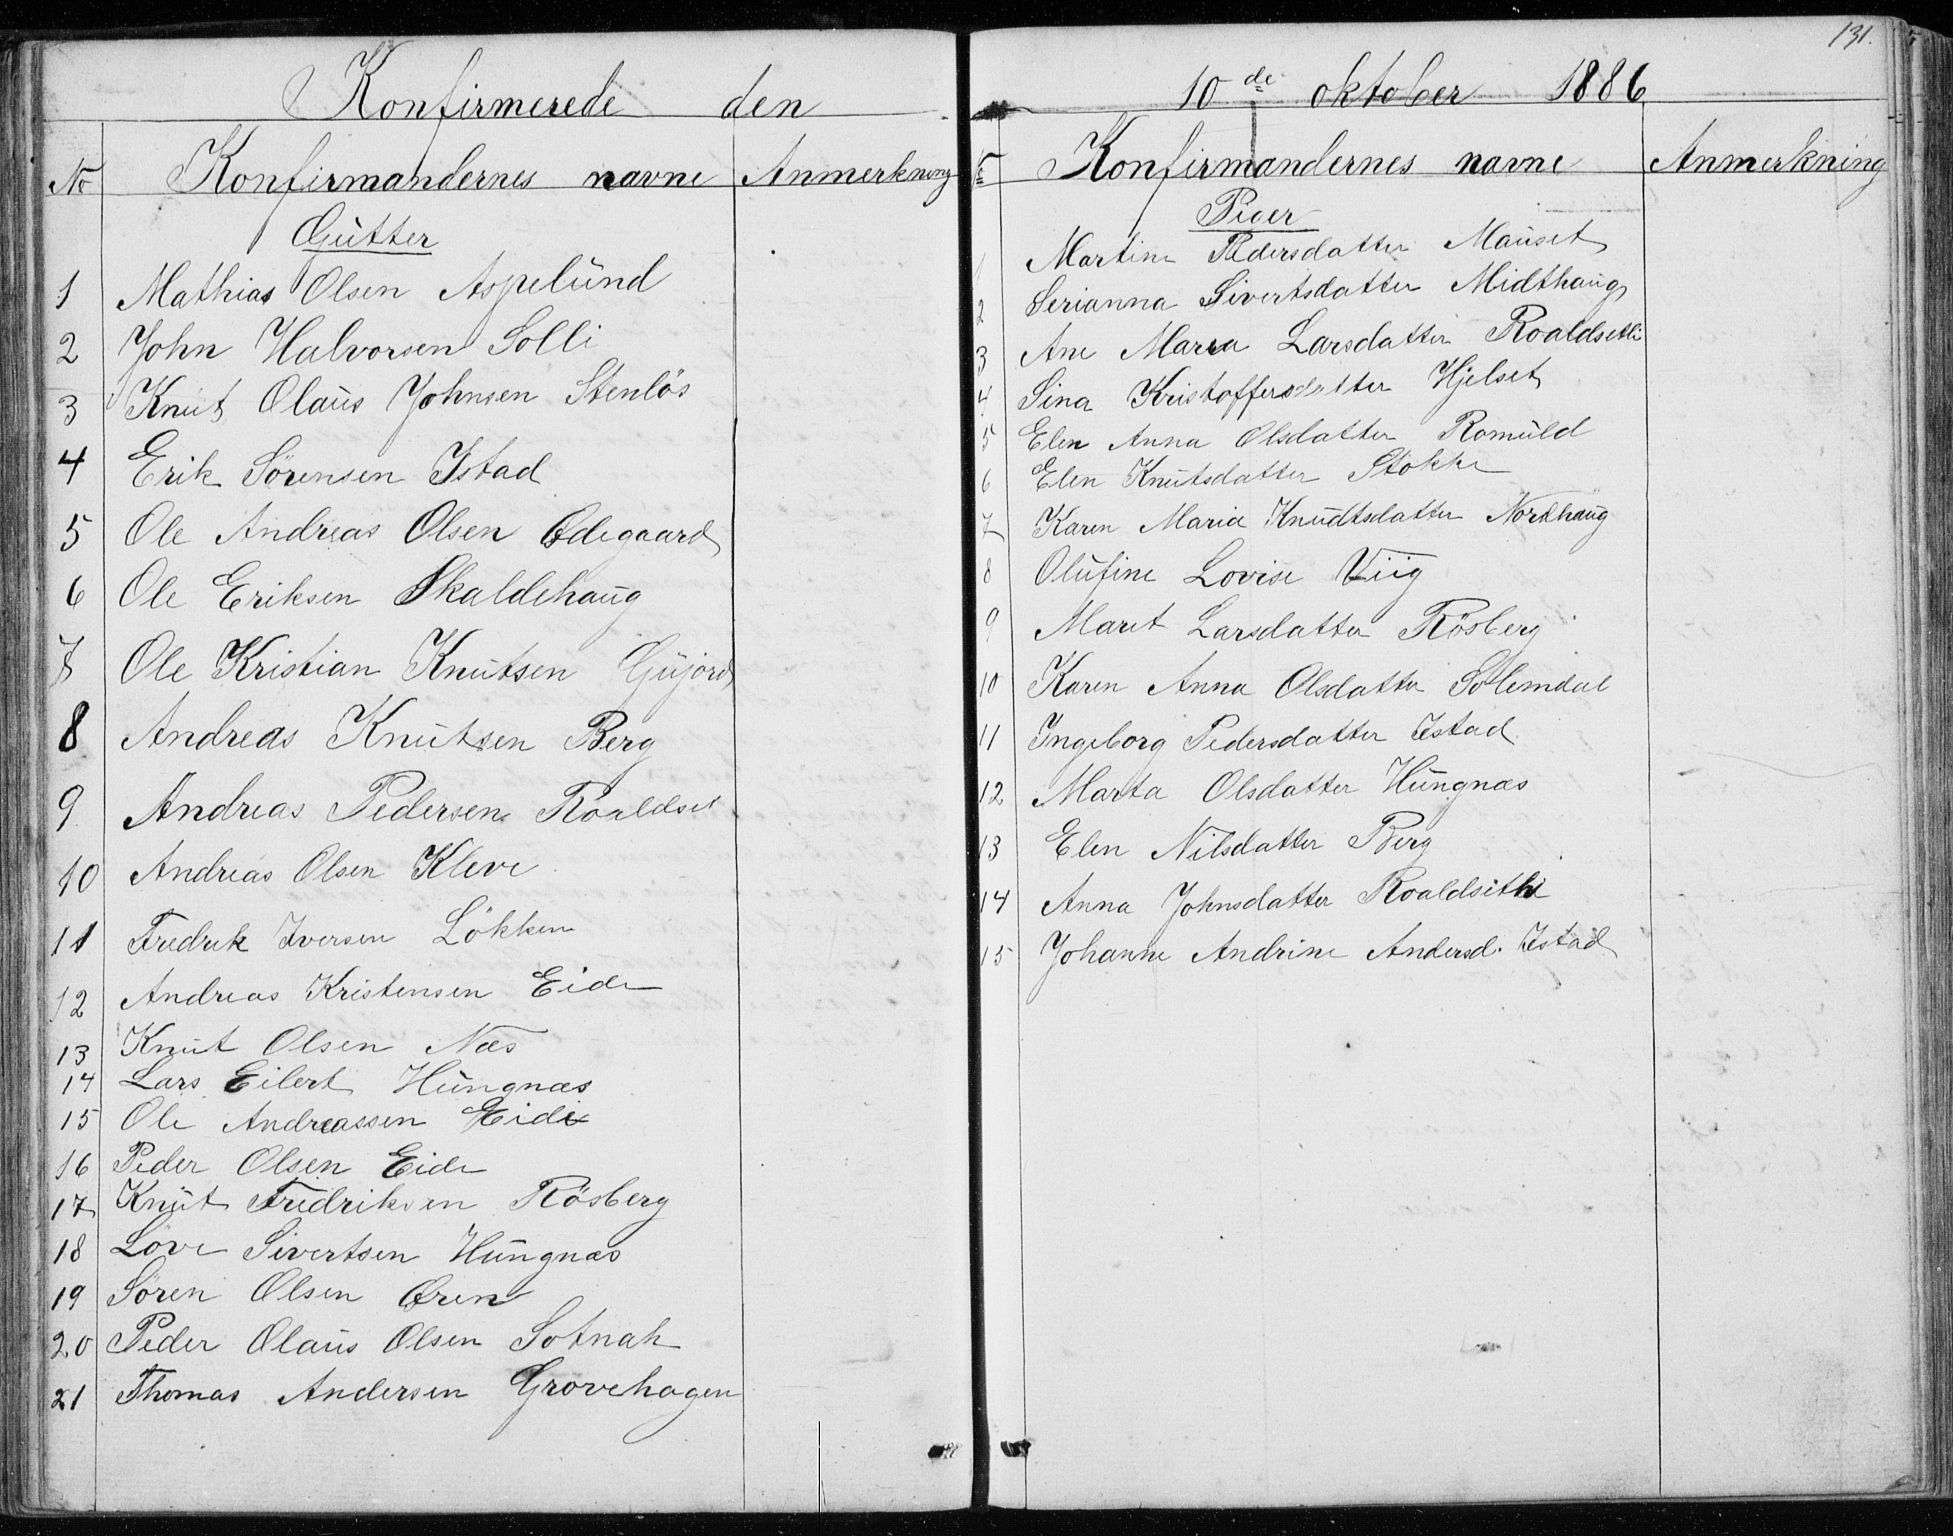 Konfirmerede den
No Konfirmandernes navne Anmerkning
Gutter
1 Mathias Olsen Aspelund
2 John Halvorsen Solli
3 Knut Olaus Johnsen Stenlös
4 Erik Sörensen Istad
5 Ole Andreas Olsen Ødegaard
6 Ole Eriksen Skaldehaug
7 Ole Kristian Knutsen Gujord
8 Andreas Knutsen Berg
9 Andreas Pedersen Roaldset
10 Andreas Olsen Kleve
11 Fredrik Iversen Lökken
12 Andreas Kristensen Eide
13 Knut Olsen Næs
14 Lars Eilert Hungnæs
15 Ole Andreassen Eide
16 Peder Olsen Eide
17 Knut Fredriksen Rösberg
18 Löve Sivertsen Hungnæs
19 Sören Olsen Øren
20 Peder Olaus Olsen Sotnak
21 Thomas Andersen Grovehagen
131.
10de oktober 1886
No Konfirmandernes navne Anmerkning
Piger
1 Martine Pedersdatter Mauset
2 Serianna Sivertsdatter Midthaug
3 Ane Maria Larsdatter Roaldsetli
4 Sina Kristoffersdatter Hjelset
5 Elen Anna Olsdatter Romuld
6 Elen Knutsdatter Stokke
7 Karen Maria Knudtsdatter Nordhaug
8 Olufine Lovise Viig
9 Marit Larsdatter Rösberg
10 Karen Anna Olsdatter Solemdal
11 Ingeborg Pedersdatter Istad
12 Marta Olsdatter Hungnæs
13 Elen Nilsdatter Berg
14 Anna Johnsdatter Roaldsetli
15 Johanne Andrine Andersd. Istad